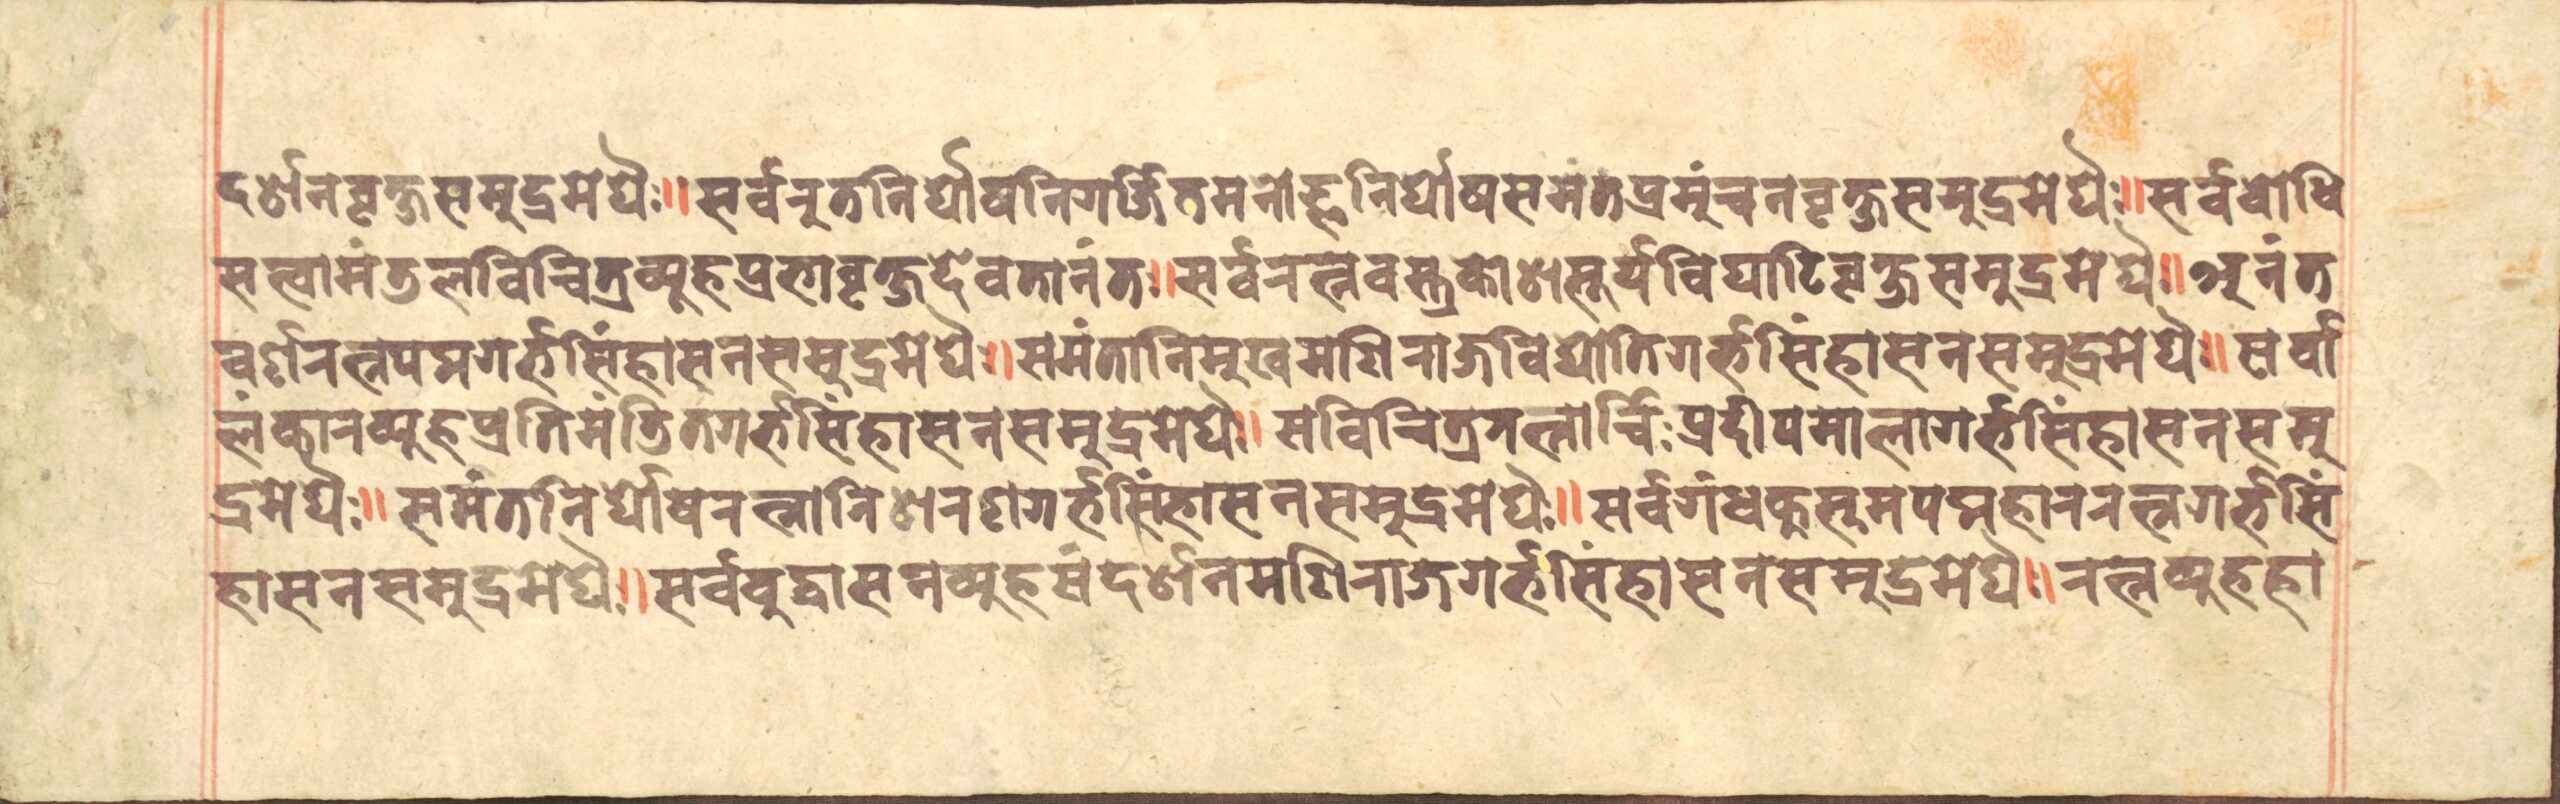 दर्शनवृक्षसमुद्रमेघैः॥सर्वरुतनिर्घोषनिगर्जितमनोज्ञनिर्घोषसमंतप्रमुंचनवृक्षसमुद्रमेघैः॥सर्वबोधि
सत्वामंडलविचित्रव्यूहप्रभावृक्षदेवतानंत॥सर्वरत्नवस्त्रकोशसूर्यविघाटिवृक्षसमुद्रमेघैः॥अनंत
वर्णरत्नपद्मगर्भसिंहासनसमुद्रमेघैः॥समंतानिमुखमणिराजविद्योतिगर्भसिंहासनसमुद्रमेघैः॥सर्वा
लंकारव्यूहप्रतिमंडितगर्भसिंहासनसमुद्रमेघैः॥सविचित्ररत्नार्चिःप्रदीपमालागर्भसिंहासनसमु
द्रमेघैः॥समंतनिर्घोषरत्नानि गर्भसिंहासनसमुद्रमेघैः॥सर्वगंधकुसुमपद्महाररत्नगर्भसिं
हासनसमुद्रमेघैः॥सर्वबुद्धासनव्यूहसंदर्शनमणिराजगर्भसिंहासनसमुद्रमेघैः॥रत्नव्यूहहा